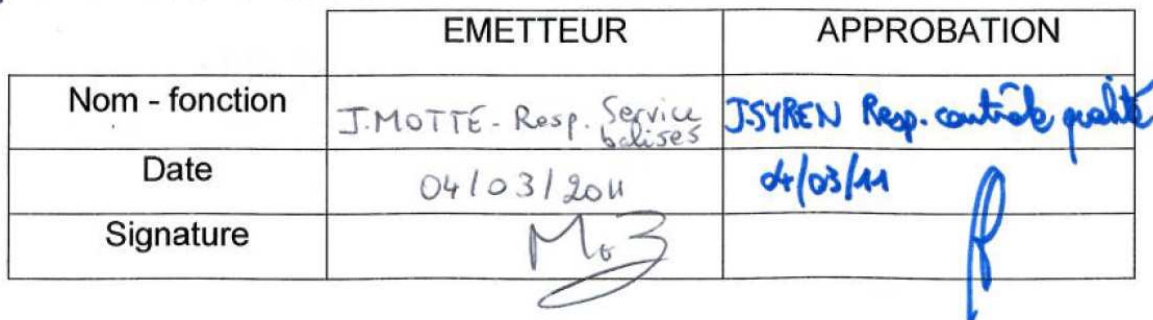 EMETTEUR APPROBATION
Nom - fonction J.MOTTE - Resp. Service balises J.SYREN Resp. contrôle qualité
Date 04/03/2011 04/03/11
Signature